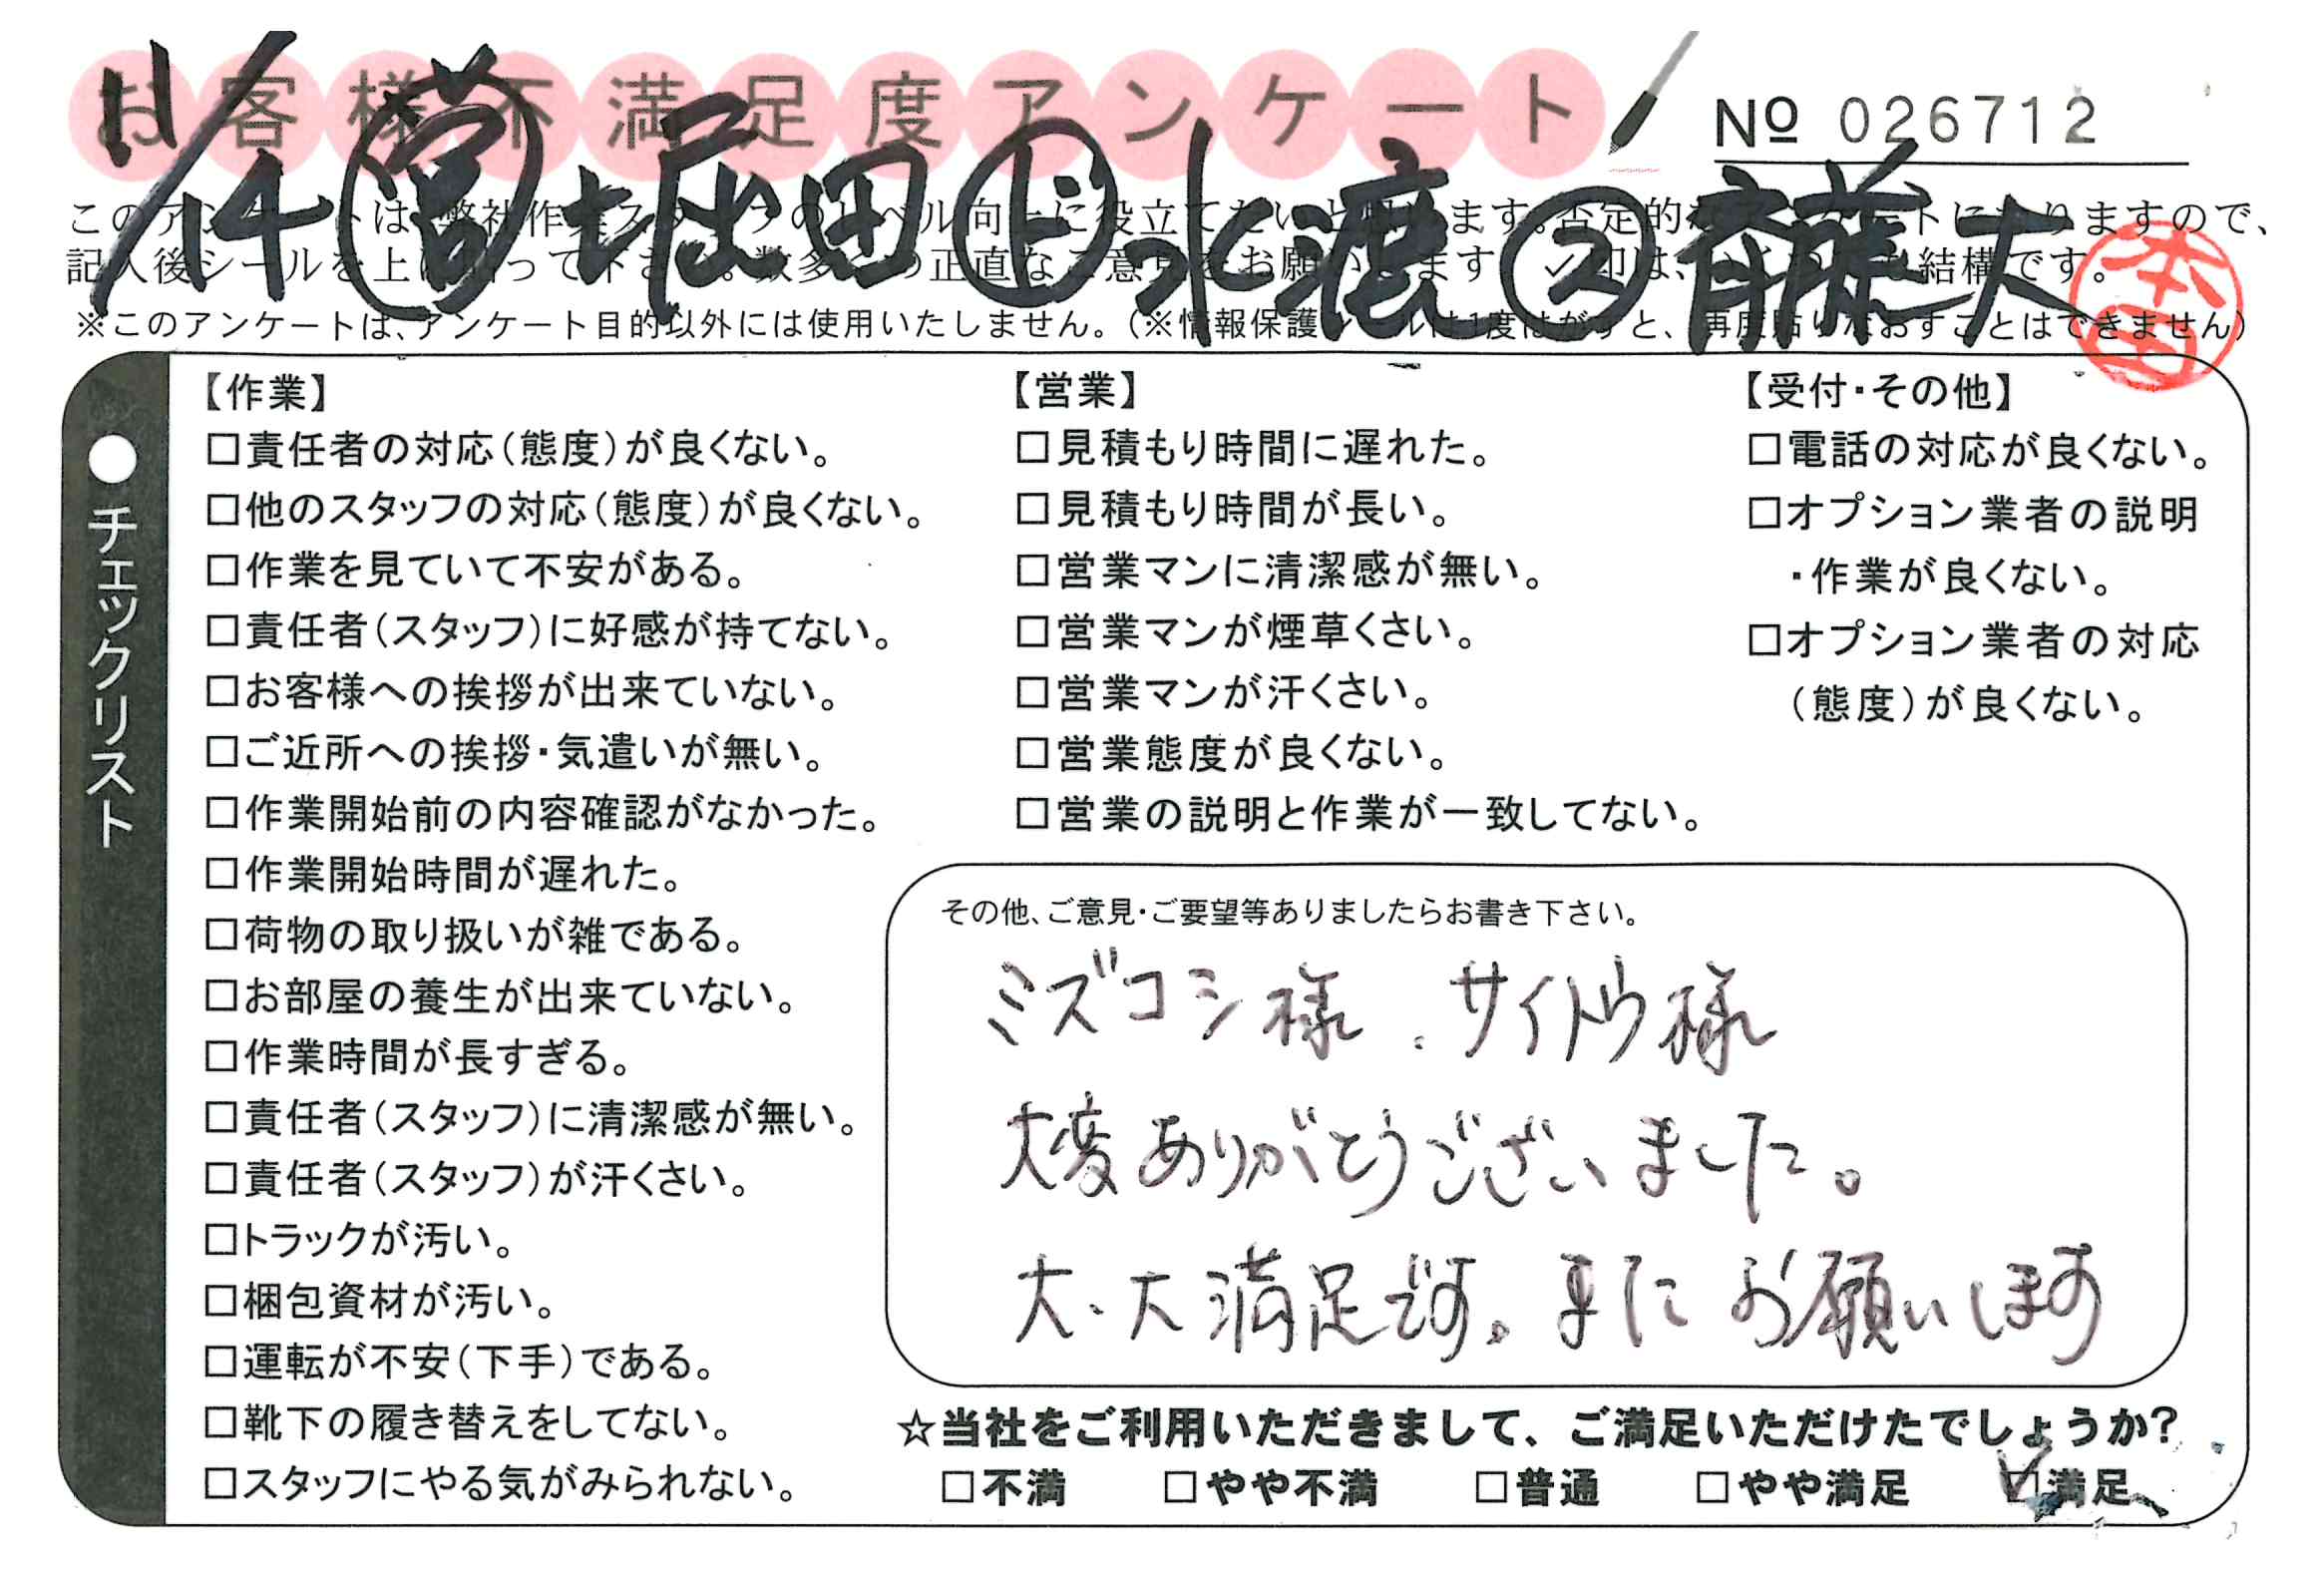 お客様不満足度アンケート
№ 026712
11/14 営 堀田 ド 水漉 2 斉藤大
本田
記入後シールを上に貼って下さい。
※このアンケートは、アンケート目的以外には使用いたしません。(※情報保護シールは1度はがすと、再度貼りなおすことはできません)
●チェックリスト
【作業】
□責任者の対応(態度)が良くない。
□他のスタッフの対応(態度)が良くない。
□作業を見ていて不安がある。
□責任者(スタッフ)に好感が持てない。
□お客様への挨拶が出来ていない。
□ご近所への挨拶・気遣いが無い。
□作業開始前の内容確認がなかった。
□作業開始時間が遅れた。
□荷物の取り扱いが雑である。
□お部屋の養生が出来ていない。
□作業時間が長すぎる。
□責任者(スタッフ)に清潔感が無い。
□責任者(スタッフ)が汗くさい。
□トラックが汚い。
□梱包資材が汚い。
□運転が不安(下手)である。
□靴下の履き替えをしてない。
□スタッフにやる気がみられない。
【営業】
□見積もり時間に遅れた。
□見積もり時間が長い。
□営業マンに清潔感が無い。
□営業マンが煙草くさい。
□営業マンが汗くさい。
□営業態度が良くない。
□営業の説明と作業が一致してない。
【受付・その他】
□電話の対応が良くない。
□オプション業者の説明
・作業が良くない。
□オプション業者の対応
(態度)が良くない。
その他、ご意見・ご要望等ありましたらお書き下さい。
ミズコシ様、サイトウ様
大変ありがとうございました。
大・大満足です。またお願いします
☆当社をご利用いただきまして、ご満足いただけたでしょうか?
□不満 □やや不満 □普通 □やや満足 ☑満足